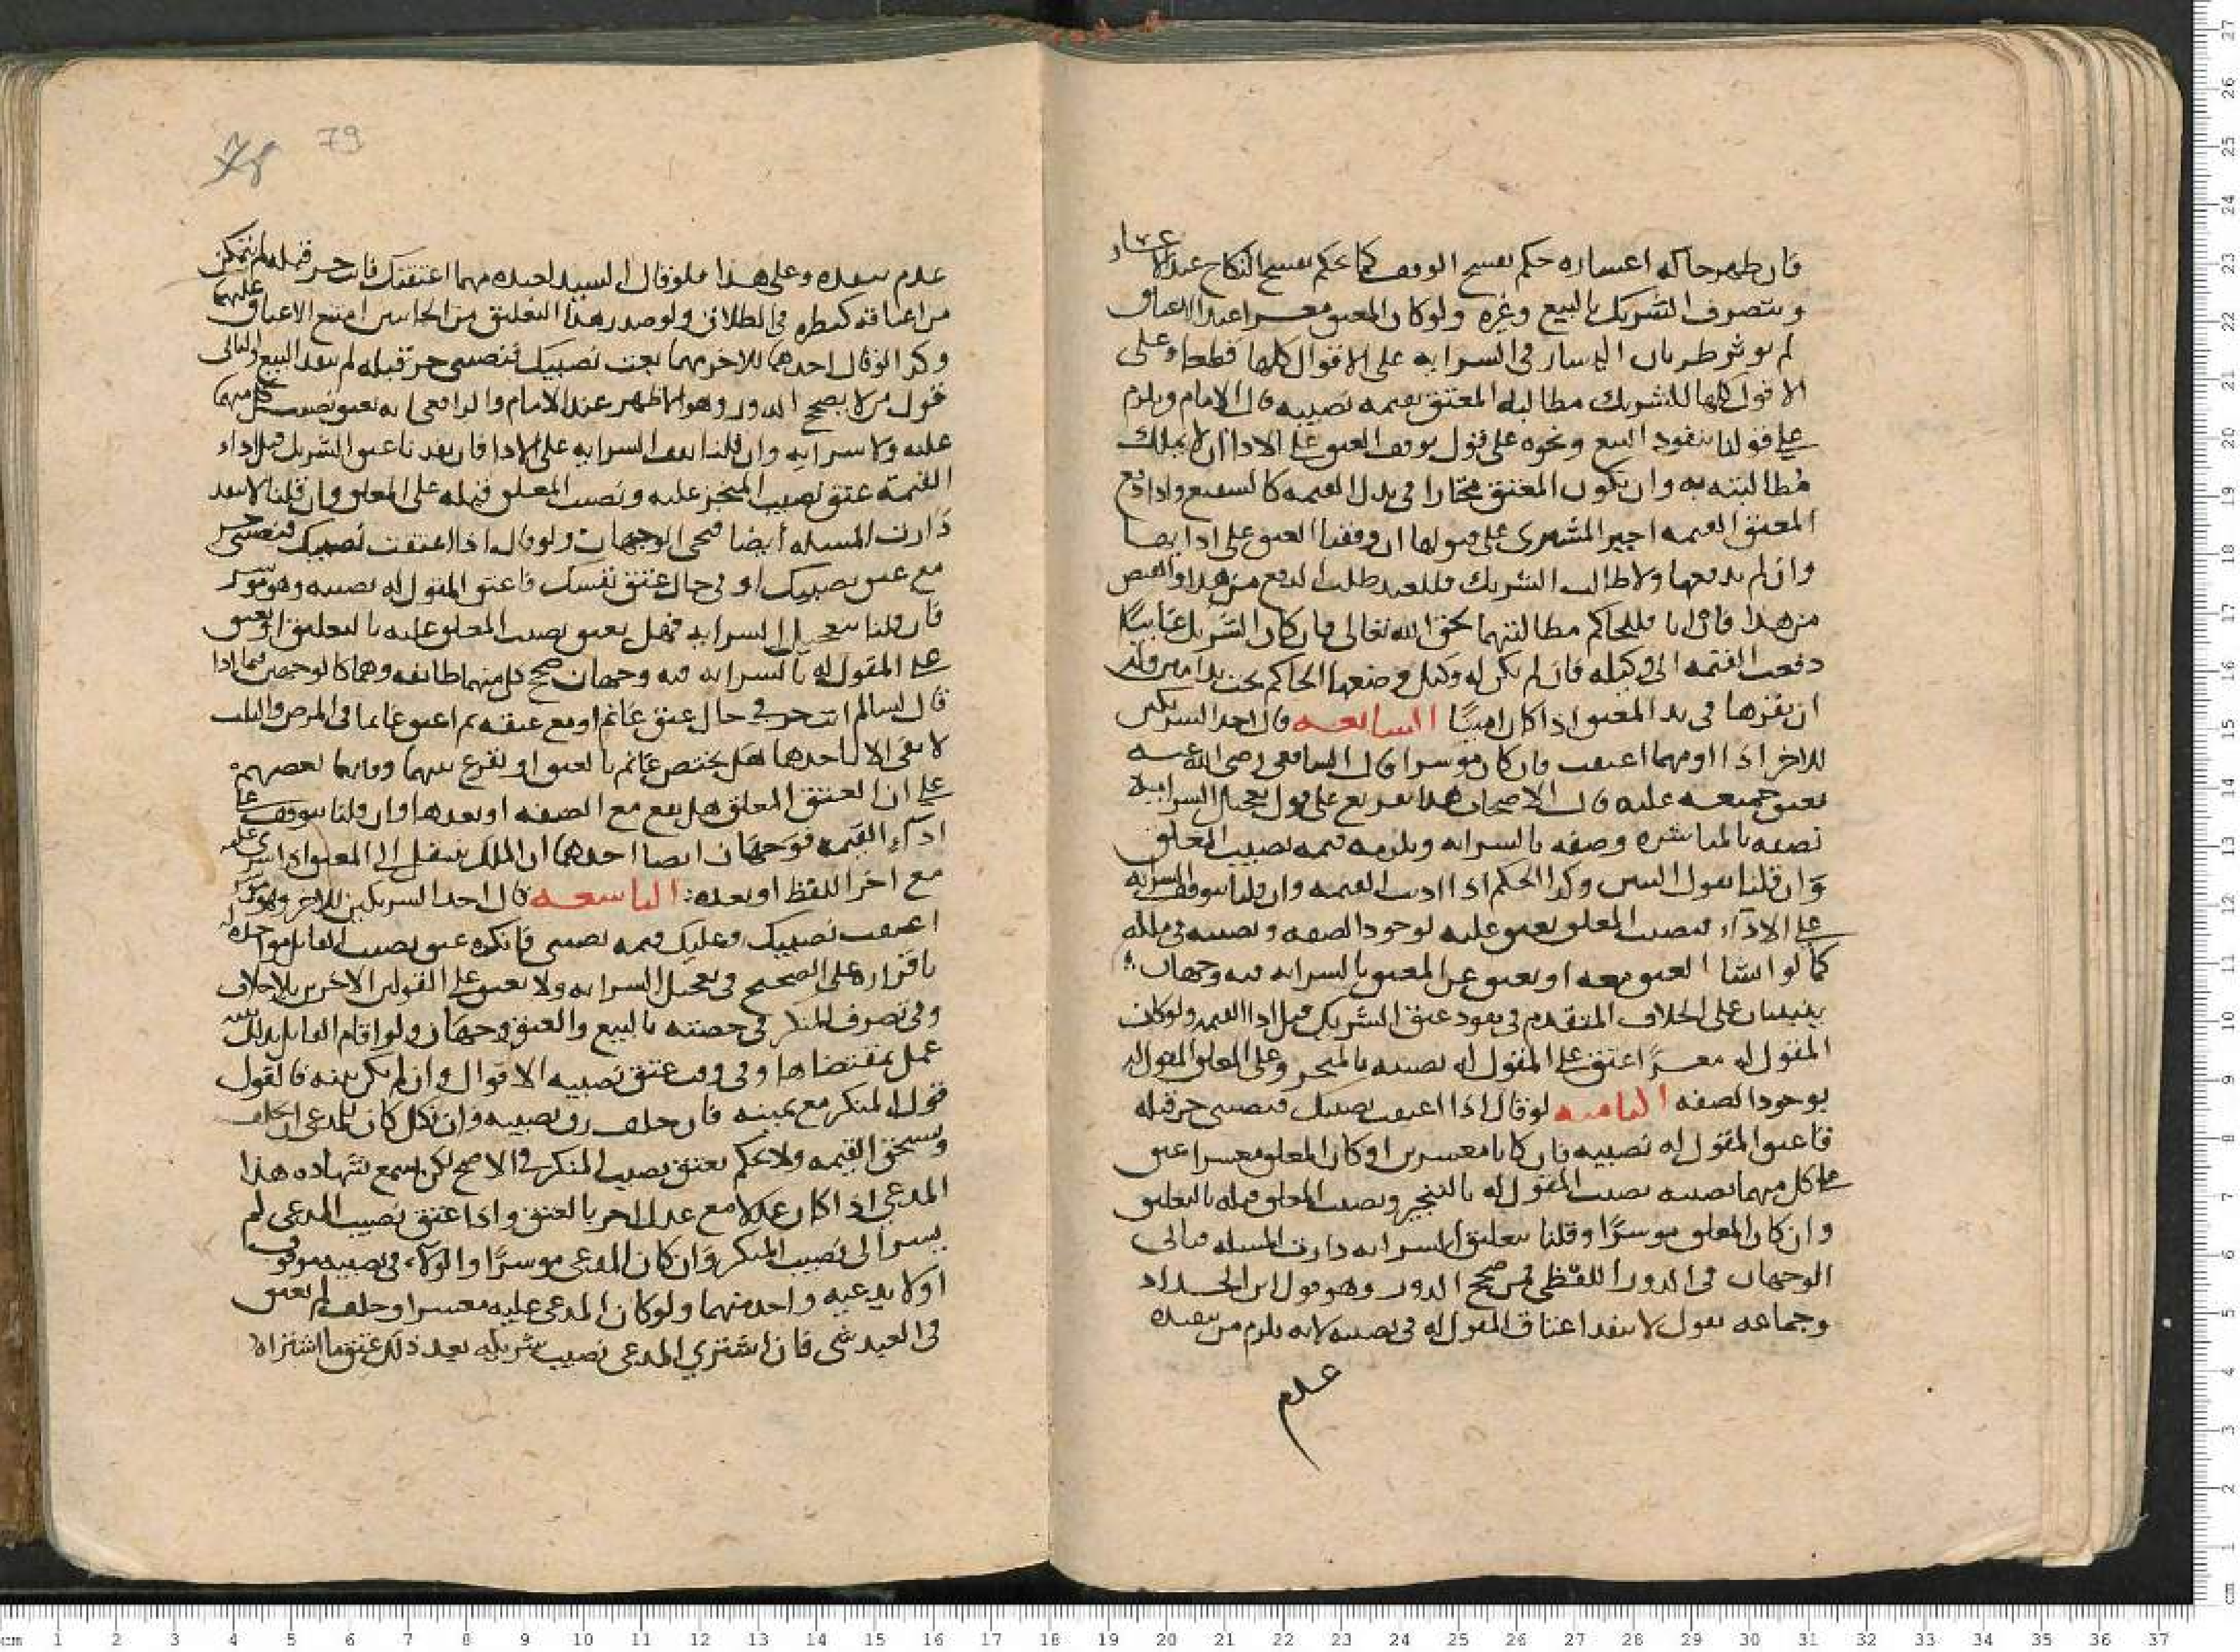 فان ظهر حاكه اعساره حكم بفسخ الوقف كما يحكم بفسخ النكاح عند الاعسار
ويتصرف الشريك بالبيع وغيره ولو كان المعتق معسرا عند الاعتاق
لم يوثر طريان اليسار في السرايه على الاقوال كلها قطعا وعلى
الاقوال كلها للشريك مطالبه المعتق بقيمه نصيبه قال الامام ويلزم
على قولنا بنفوذ البيع ونحوه على قول يوقف العتق على الادا ان لا يملك
مطالبته به وان يكون المعتق مختارا في بذل القيمه كالشفيع واذا دفع
المعتق القيمه اجبر المشترى على قبولها ان وقفنا العتق على ادايها
وان لم يدفعها ولا طالب الشريك فللعبد طلب الدفع من هذا والقبض
من هذا فان ابا فللحاكم مطالبتهما بحق الله تعالى فان كان الشريك غايبا
دفعت القيمه الى وكيله فان لم يكن له وكيل وضعها الحاكم تحت يد امين وله
ان يقرها في يد المعتق اذا كان امينا السابعه قال احد الشريكين
للاخر اذا او مهما اعتقت فان كان موسرا قال الشافعي رضي الله عنه
يعتق جميعه عليه قال الاصحاب هذا تفريع على قول تعجيل السرايه
نصفه بالمباشره ونصفه بالسرايه ويلزمه قيمه نصيب المعلق
وان قلنا بقول التبين وكذا الحكم اذا اديت القيمه وان قلنا بتوقف السرايه
على الاداء فنصيب المعلق يعتق عليه لوجود الصفه ونصيبه في ملكه
كما لو انشا العتق معه او يعتق عن المعتق بالسرايه فيه وجهان
ينبنيان على الخلاف المتقدم في نفوذ عتق الشريك قبل ادا القيمه ولو كان
المقول له معسرًا اعتق على المقول له نصيبه بالمنجز وعلى المعلق المقول له
بوجود الصفه الثامنه لو قال اذا اعتقت نصيبك فنصيبي حر قبله
فاعتق المقول له نصيبه فان كانا معسرين او كان المعلق معسرا عتق
على كل منهما نصيبه نصيب المقول له بالتنجيز ونصيب المعلق قبله بالتعليق
وان كان المعلق موسرًا وقلنا بتعليق السرايه دارت المسله فياتى
الوجهان في الدور اللفظي فمن صحح الدور وهو قول ابن الحداد
وجماعه يقول لا ينفذ اعتاق المقول له في نصيبه لانه يلزم من نفوذه
عدم
عدم نفوذه وعلى هذا فلو قال السيد لعبده مهما اعتقتك فانت حر قبله لم يتمكن
من اعتاقه كنظيره في الطلاق ولو صدر هذا التعليق من الجانبين امتنع الاعتاق عليهما
وكذا لو قال احدهما للاخر مهما بعت نصيبك فنصيبي حر قبله لم ينفذ البيع والثاني
قول من لا يصحح الدور وهو الاظهر عند الامام والرافعي انه يعتق نصيب كل منهما
عليه ولا سرايه وان قلنا تقف السرايه على الادا فان نفذنا عتق الشريك قبل اداء
القيمة عتق نصيب المنجز عليه ونصيب المعلق قبله على المعلق وان قلنا لا ينفذ
دارت المسله أيضا فيجي الوجهان ولو قال اذا اعتقت نصيبك فنصيبي حر
مع عتق نصيبك او في حال عتق نفسك فاعتق المقول له نصيبه وهو موسر
فان قلنا بتعجيل السرايه فهل يعتق نصيب المعلق عليه بالتعليق او يعتق
على المقول له بالسرايه فيه وجهان صحح كل منهما طائفه وهما كالوجهين فيما اذا
قال لسالم انت حر في حال عتق غانم او مع عتقه ثم اعتق غانما في المرض والثلث
لا يفى الا باحدهما هل يختص غانم بالعتق او يقرع بينهما وبناهما بعضهم
على ان العتق المعلق هل يقع مع الصفه او بعدها وان قلنا بتوقف على
اداء القيمه فوجهان ايضا احدهما ان الملك ينتقل الى المعتق اذا سرى عليه
مع اخر اللفظ او بعده: التاسعه قال احد الشريكين للاخر وهو موسر
اعتقت نصيبك وعليك قيمه نصيبي فانكره عتق نصيب القايل مواخذه له
باقراره على الصحيح في تعجيل السرايه ولا يعتق على القولين الاخرين بلا خلاف
وفي تصرف المنكر في حصته بالبيع والعتق وجهان ولو اقام القايل بذلك بينه
عمل بمقتضاها وفي وقت عتق نصيبه الاقوال وان لم يكن بينه فالقول
قول المنكر مع يمينه فان حلف رق نصيبه وان نكل كان للمدعى ان يحلف
ويستحق القيمه ولا يحكم بعتق نصيب المنكر في الاصح لكن تسمع شهاده هذا
المدعي اذا كان عدلا مع عدل اخر بالعتق واذا عتق نصيب المدعى لم
يسر الى نصيب المنكر وان كان المدعى موسرًا والولاء في نصيبه موقوف
اولا يدعيه واحد منهما ولو كان المدعى عليه معسرا وحلف لم يعتق
في العبد شى فان اشترى المدعى نصيب شريكه بعد ذلك عتق ما اشتراه